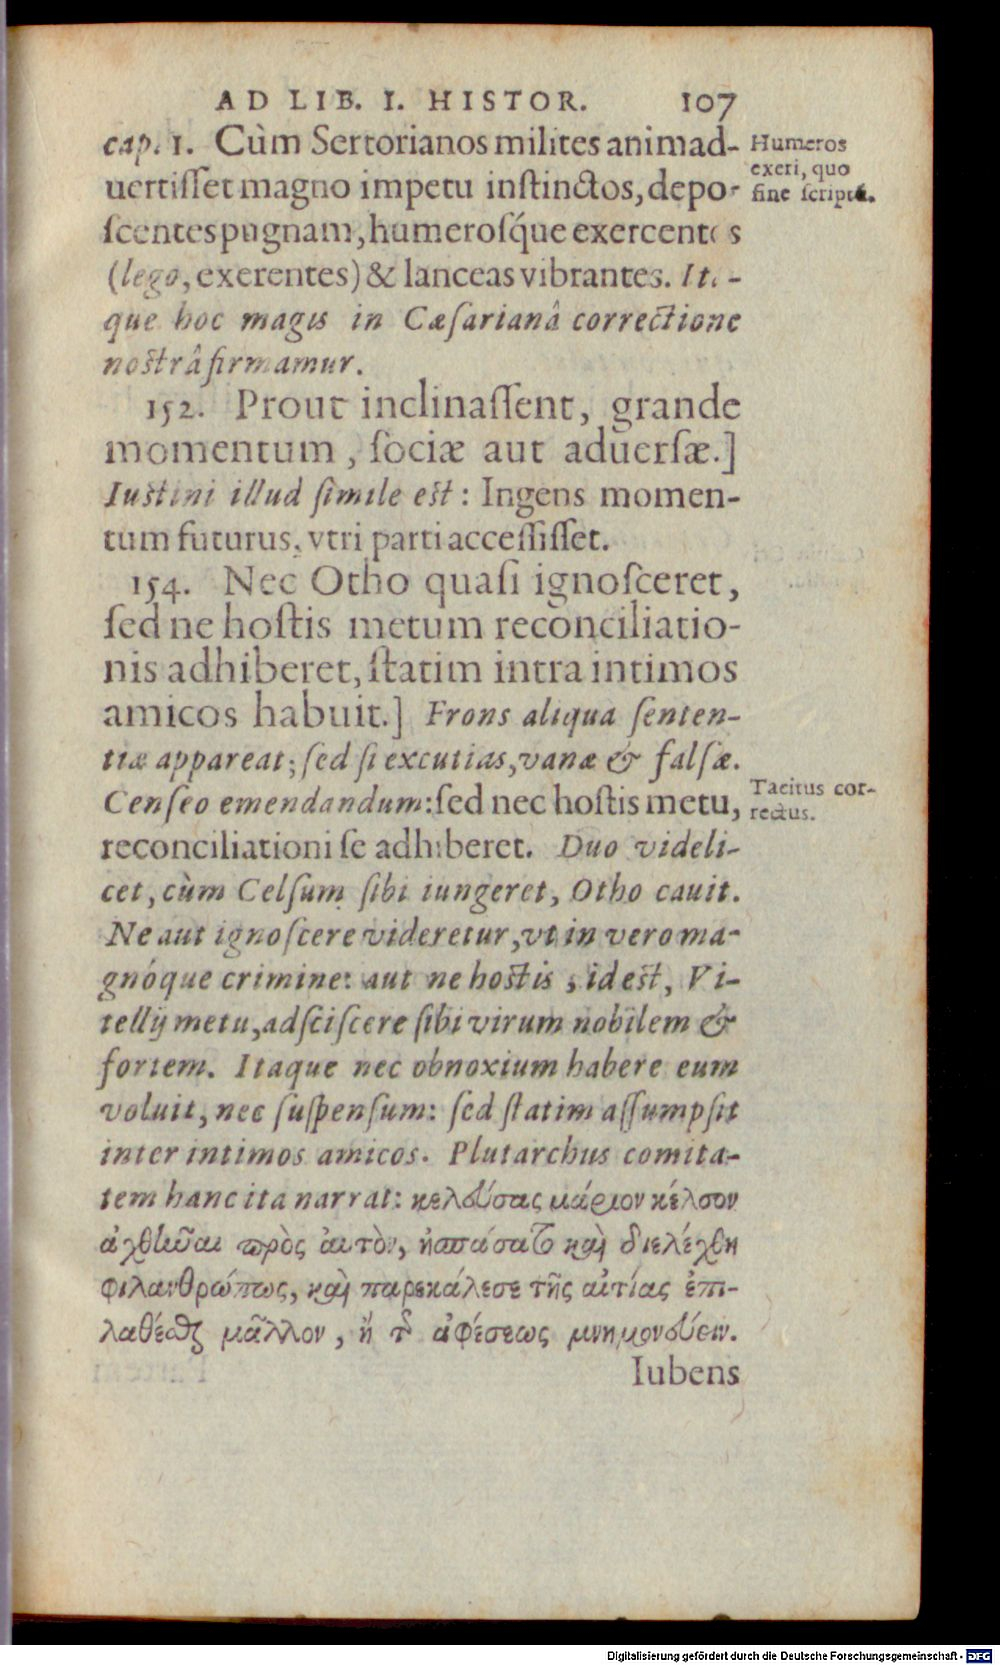 AD LIB. I. HISTOR. 107
cap. 1. Cùm Sertorianos milites animad-
uertiſſet magno impetu inſtinctos, depo-
ſcentes pugnam, humeroſq́ue exercentes
(lego, exerentes) & lanceas vibrantes. Ita-
que hoc magis in Cæſarianâ correctione
noſtrâ firmamur.
Humeros
exeri, quo
ſine ſcripta.
152. Prout inclinaſſent, grande
momentum, ſociæ aut aduerſæ.]
Iuſtini illud ſimile eſt: Ingens momen-
tum futurus, vtri parti acceſſiſſet.
154. Nec Otho quaſi ignoſceret,
ſed ne hoſtis metum reconciliatio-
nis adhiberet, ſtatim intra intimos
amicos habuit.] Frons aliqua ſenten-
tiæ appareat; ſed ſi excutias, vanæ & falſæ.
Cenſeo emendandum: ſed nec hoſtis metu,
reconciliationi ſe adhiberet. Duo videli-
Tacitus cor-
rectus.
cet, cùm Celſum ſibi iungeret, Otho cauit.
Ne aut ignoſcere videretur, vt in vero ma-
gnóque crimine: aut ne hoſtis, id eſt, Vi-
tellij metu, adſciſcere ſibi virum nobilem &
fortem. Itaque nec obnoxium habere eum
voluit, nec ſuſpenſum: ſed ſtatim aſſumpſit
inter intimos amicos. Plutarchus comita-
tem hanc ita narrat: κελεύσας μάριον κέλσον
ἀχθῆναι πρὸς αὐτὸν, ἠσπάσατο καὶ διελέχθη
φιλανθρώπως, καὶ παρεκάλεσε τῆς αἰτίας ἐπι-
λαθέσθαι μᾶλλον, ἢ τῆς ἀφέσεως μνημονεύειν.
Iubens
Digitalisierung gefördert durch die Deutsche Forschungsgemeinschaft - DFG